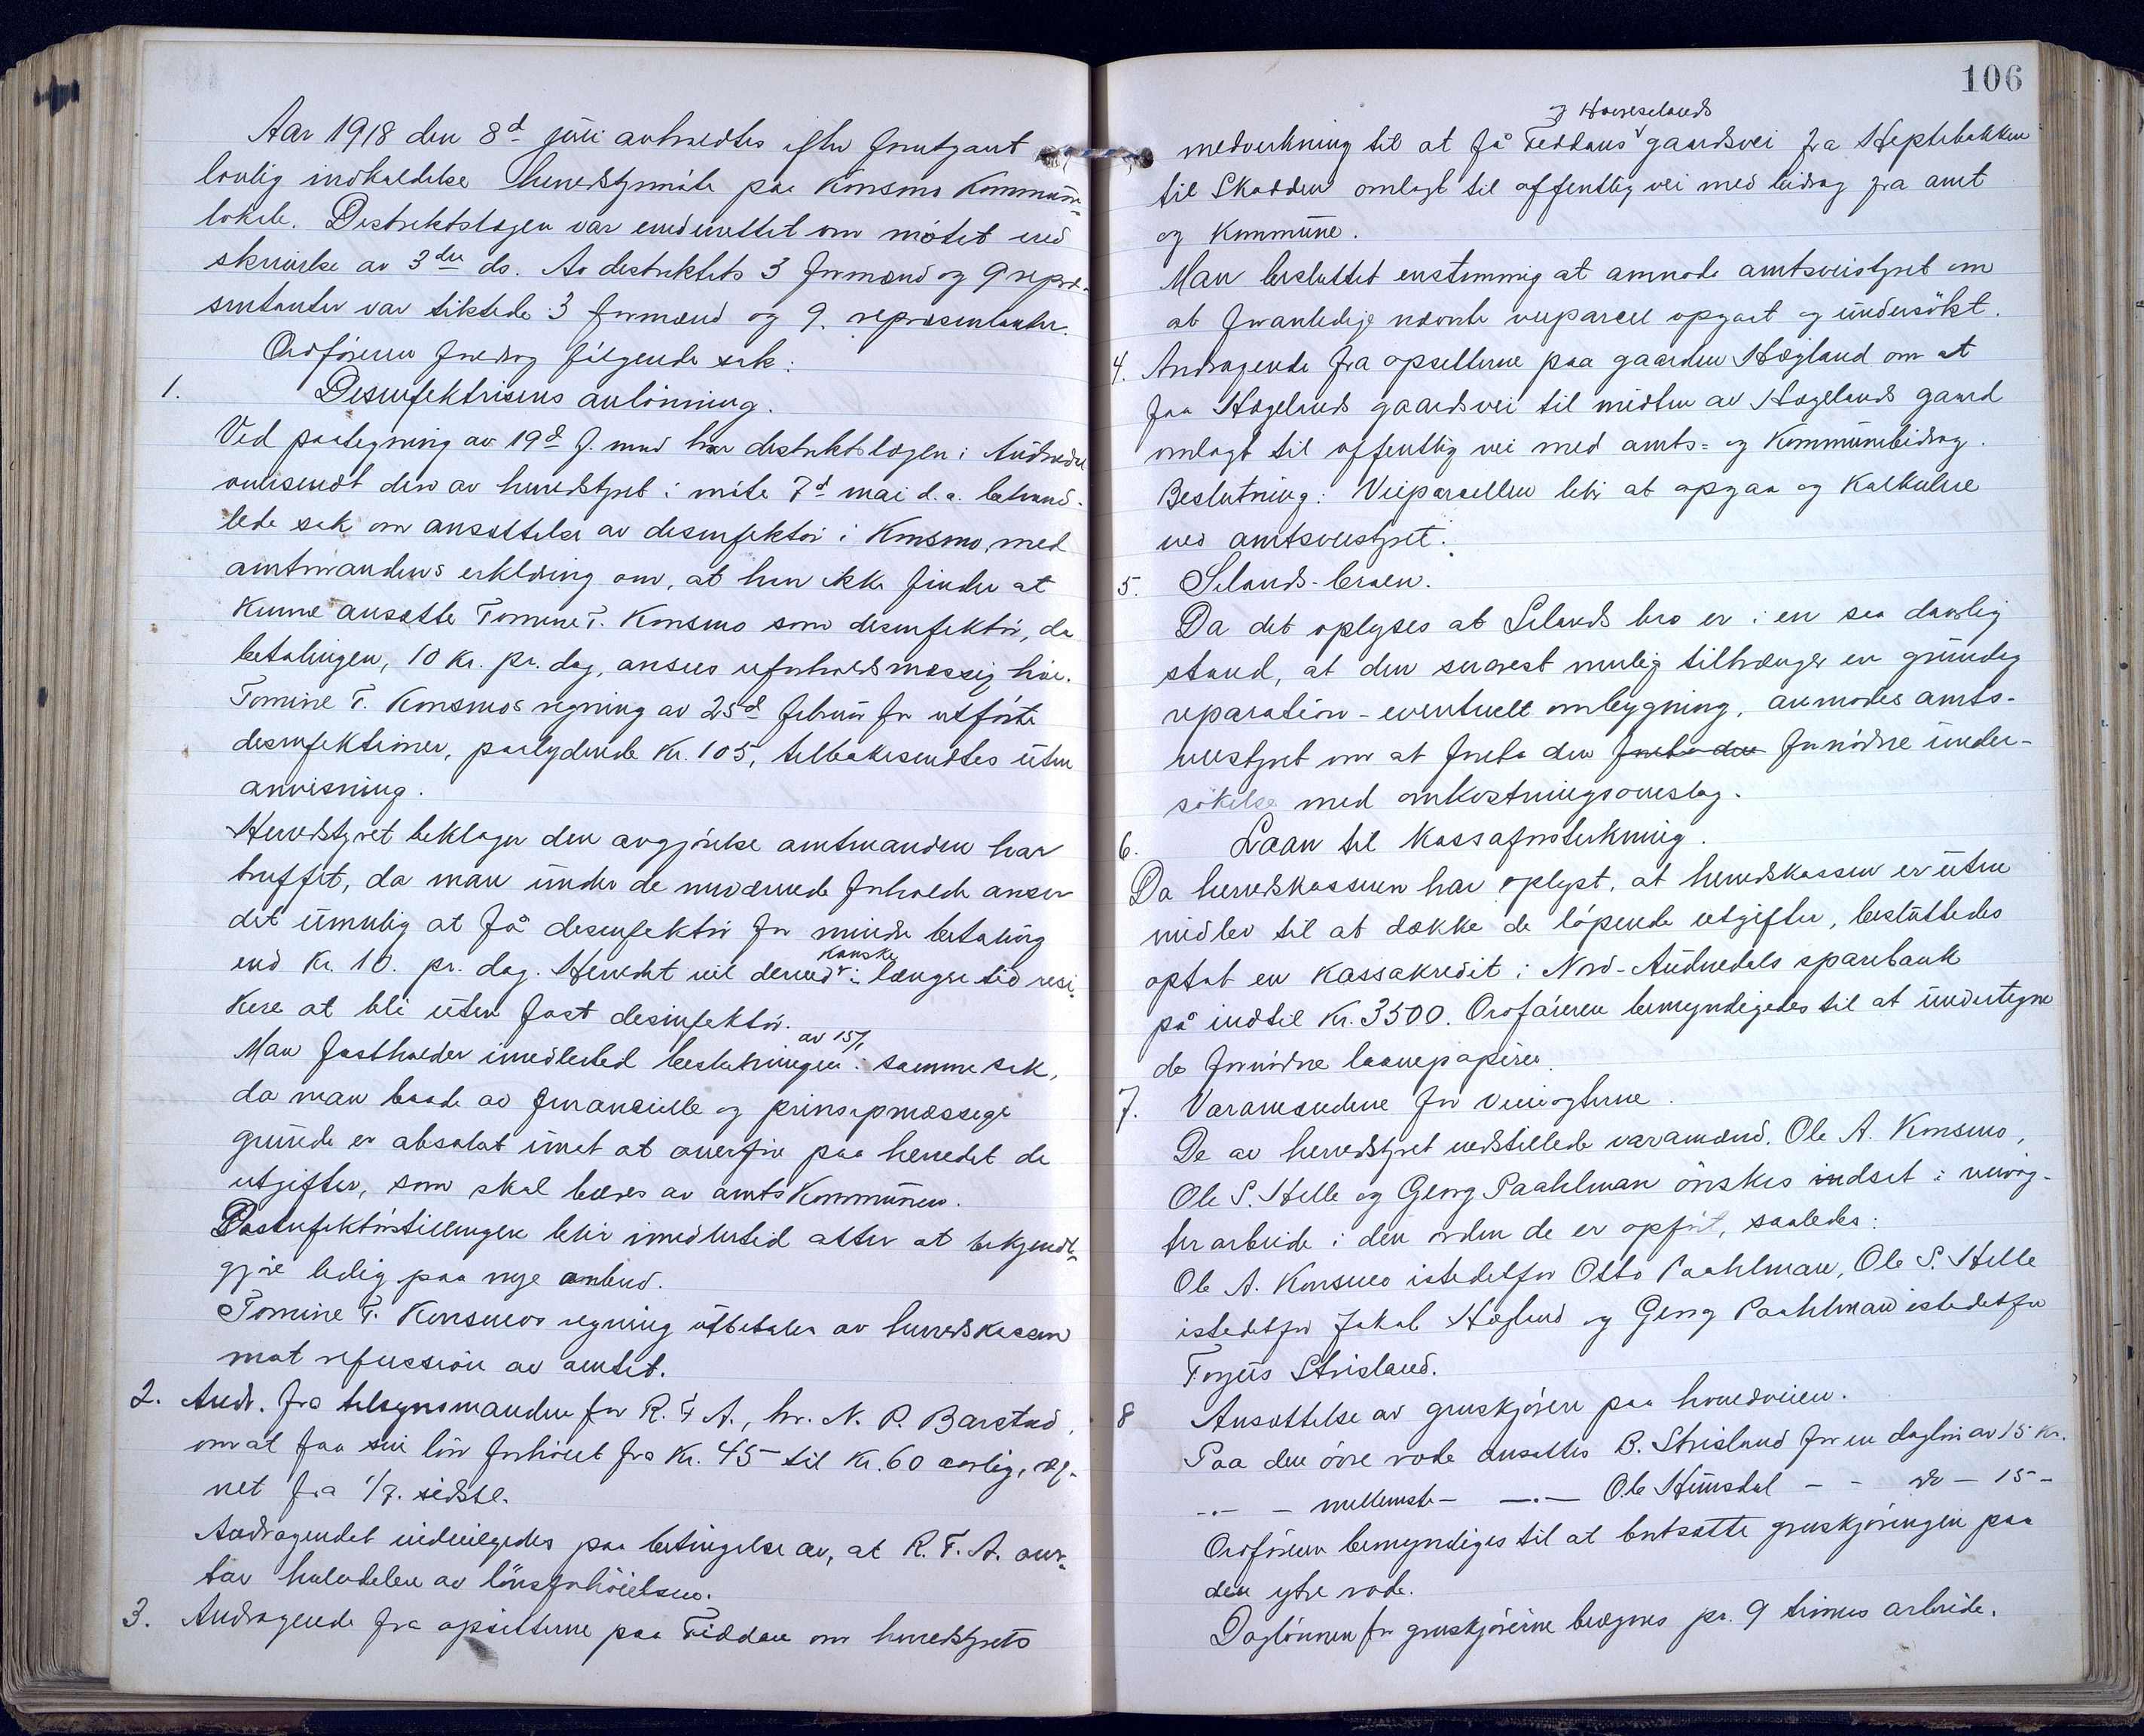 Aar 1918 den 8d juli avholdtes efter forutgaat
lovlig indkaldelse herredsstyremöte paa Konsmo Kommune-
lokale. Distriktslægen var underrettet om mötet ved
skrivelse av 3die ds. Av distriktets 3 formænd og 9 repræ-
sentanter var tilstede 3 formænd og 9. repræsentanter.
Ordföreren foredrog fölgende sak:
1. Desinfektrisens avlönning.
Ved paategning av 19d f. mnd har distriktslægen i Audnedal
oversendt den av herredstyret i möte 7d mai d.a. behand-
lede sak om ansættelse av desinfektör i Konsmo, med
amtmandens erklæring om, at han ikke finder at
kunne ansætte Tomine T. Konsmo som desinfektör, da
betalingen, 10 kr. pr. dag, ansees uforholdsmæssig höi.
Tomine T. Konsmos regning av 25d februar for utförte
desinfektioner, paalydende Kr. 105, tilbakesendtes uten
anvisning.
Herredstyret beklager den avgjörelse amtmanden har
truffet, da man under de nuværende forholde anser
det umulig at få desinfektör for mindre betaling
end Kr. 10. pr. dag. Herredet vil derved kanske i længre tid risi-
kere at bli uten fast desinfektör.
Man fastholder imidlertid beslutningen av 15/1 i samme sak,
da man baade av finansielle og prinsipmæssige
grunde er absolut imot at overföre paa herredet de
utgifter, som skal bæres av amtskommunen.
Desinfektörstillingen blir imidlertid atter at bekjendt-
gjöre ledig paa nye anbud.
Tomine T. Konsmos regning utbetales av herredskassen
mot refussion av amtet.
2. Andr. fra tilsynsmanden for R. T A., hr. N. P. Barstad,
om at faa sin lön forhöiet fra Kr. 45 til Kr. 60 aarlig, reg-
net fra 1/7. sidstl.
Andragendet indvilgedes paa betingelse av, at R. T. A. over-
tar halvdelen av lönsforhöielsen.
3. Andragende fra opsitterne paa Feddan om herredstyrets
106
og Hæreselands
medvirkning til at få Feddans gaardsvei fra Heptebakken
til Skadden omlagt til offentlig vei med bidrag fra amt
og kommune.
Man besluttet enstemmig at anmode amtsveistyret om
at foranledige nævnte veiparcel opgaat og undersökt.
4. Andragende fra opsitterne paa gaarden Høgland om at
faa Høgelands gaardsvei til midten av Høgelands gaard
omlagt til offentlig vei med amts- og Kommunebidrag.
Beslutning: Veiparcellen blir at opgaa og kalkulere
ved amtsveistyret.
5. Selands-broen.
Da det oplyses at Selands bro er i en saa daarlig
stand, at den snarest mulig tiltrænger en grundig
reparation - eventuelt ombygning, anmodes amts-
veistyret om at foreta den foreta den fornödne under-
sökelse med omkostningsoverslag.
6. Laan til Kassaforsterkning.
Da herredskasseren har oplyst, at herredskassen er uten
midler til at dække de löpende utgifter, besluttedes
optat en kassakredit i Nord-Audnedals sparebank
på indtil Kr. 3500. Ordföreren bemyndigedes til at undertegne
de fornödne laanepapirer.
7. Varamændene for veivogterne.
De av herredstyret indstillede varamænd, Ole A. Konsmo,
Ole S. Helle og Georg Paahlman önskes indsat i veivog-
terarbeide i den orden de er opfört, saaledes:
Ole A. Konsmo istedetfor Otto Paahlman, Ole S. Helle
istedetfor Jakob Høgland og Georg Paahlman istedetfor
Torjus Strisland.
8 Ansættelse av gruskjörere paa hovedveien.
Paa den övre rode ansattes B. Strisland for en daglön av 15 Kr.
-.- - mellemste - -.- Ole Hunsdal - - do - 15 -
Ordföreren bemyndiges til at bortsætte gruskjöringen paa
den ytre rode.
Daglönnen for gruskjörerne beregnes pr. 9 timers arbeide.